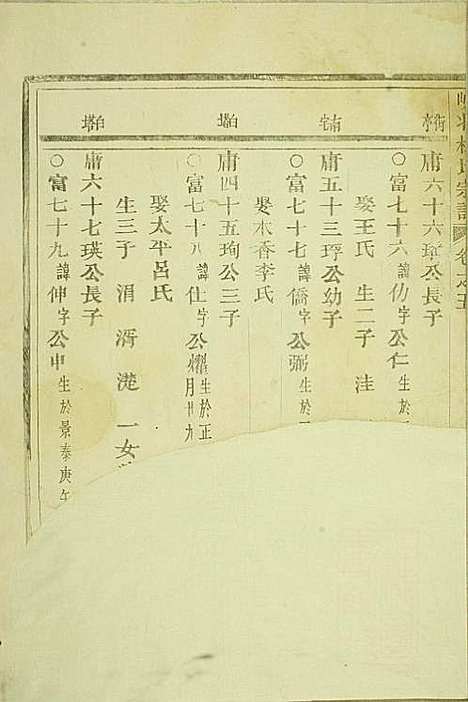 宗譜 卷之五
庸六十六璋公長子
○富七十六諱仂字公仁生於
娶王氏 生二子 洼
庸五十三琈公幼子
○富七十七諱僑字公弼生於
娶木香李氏
庸四十五珣公三子
○富七十八諱住字公燿生於正月廿九
娶太平呂氏
生三子 涓 湑 漇 一女
庸六十七瑛公長子
○富七十九諱伸字公申生於景泰庚午